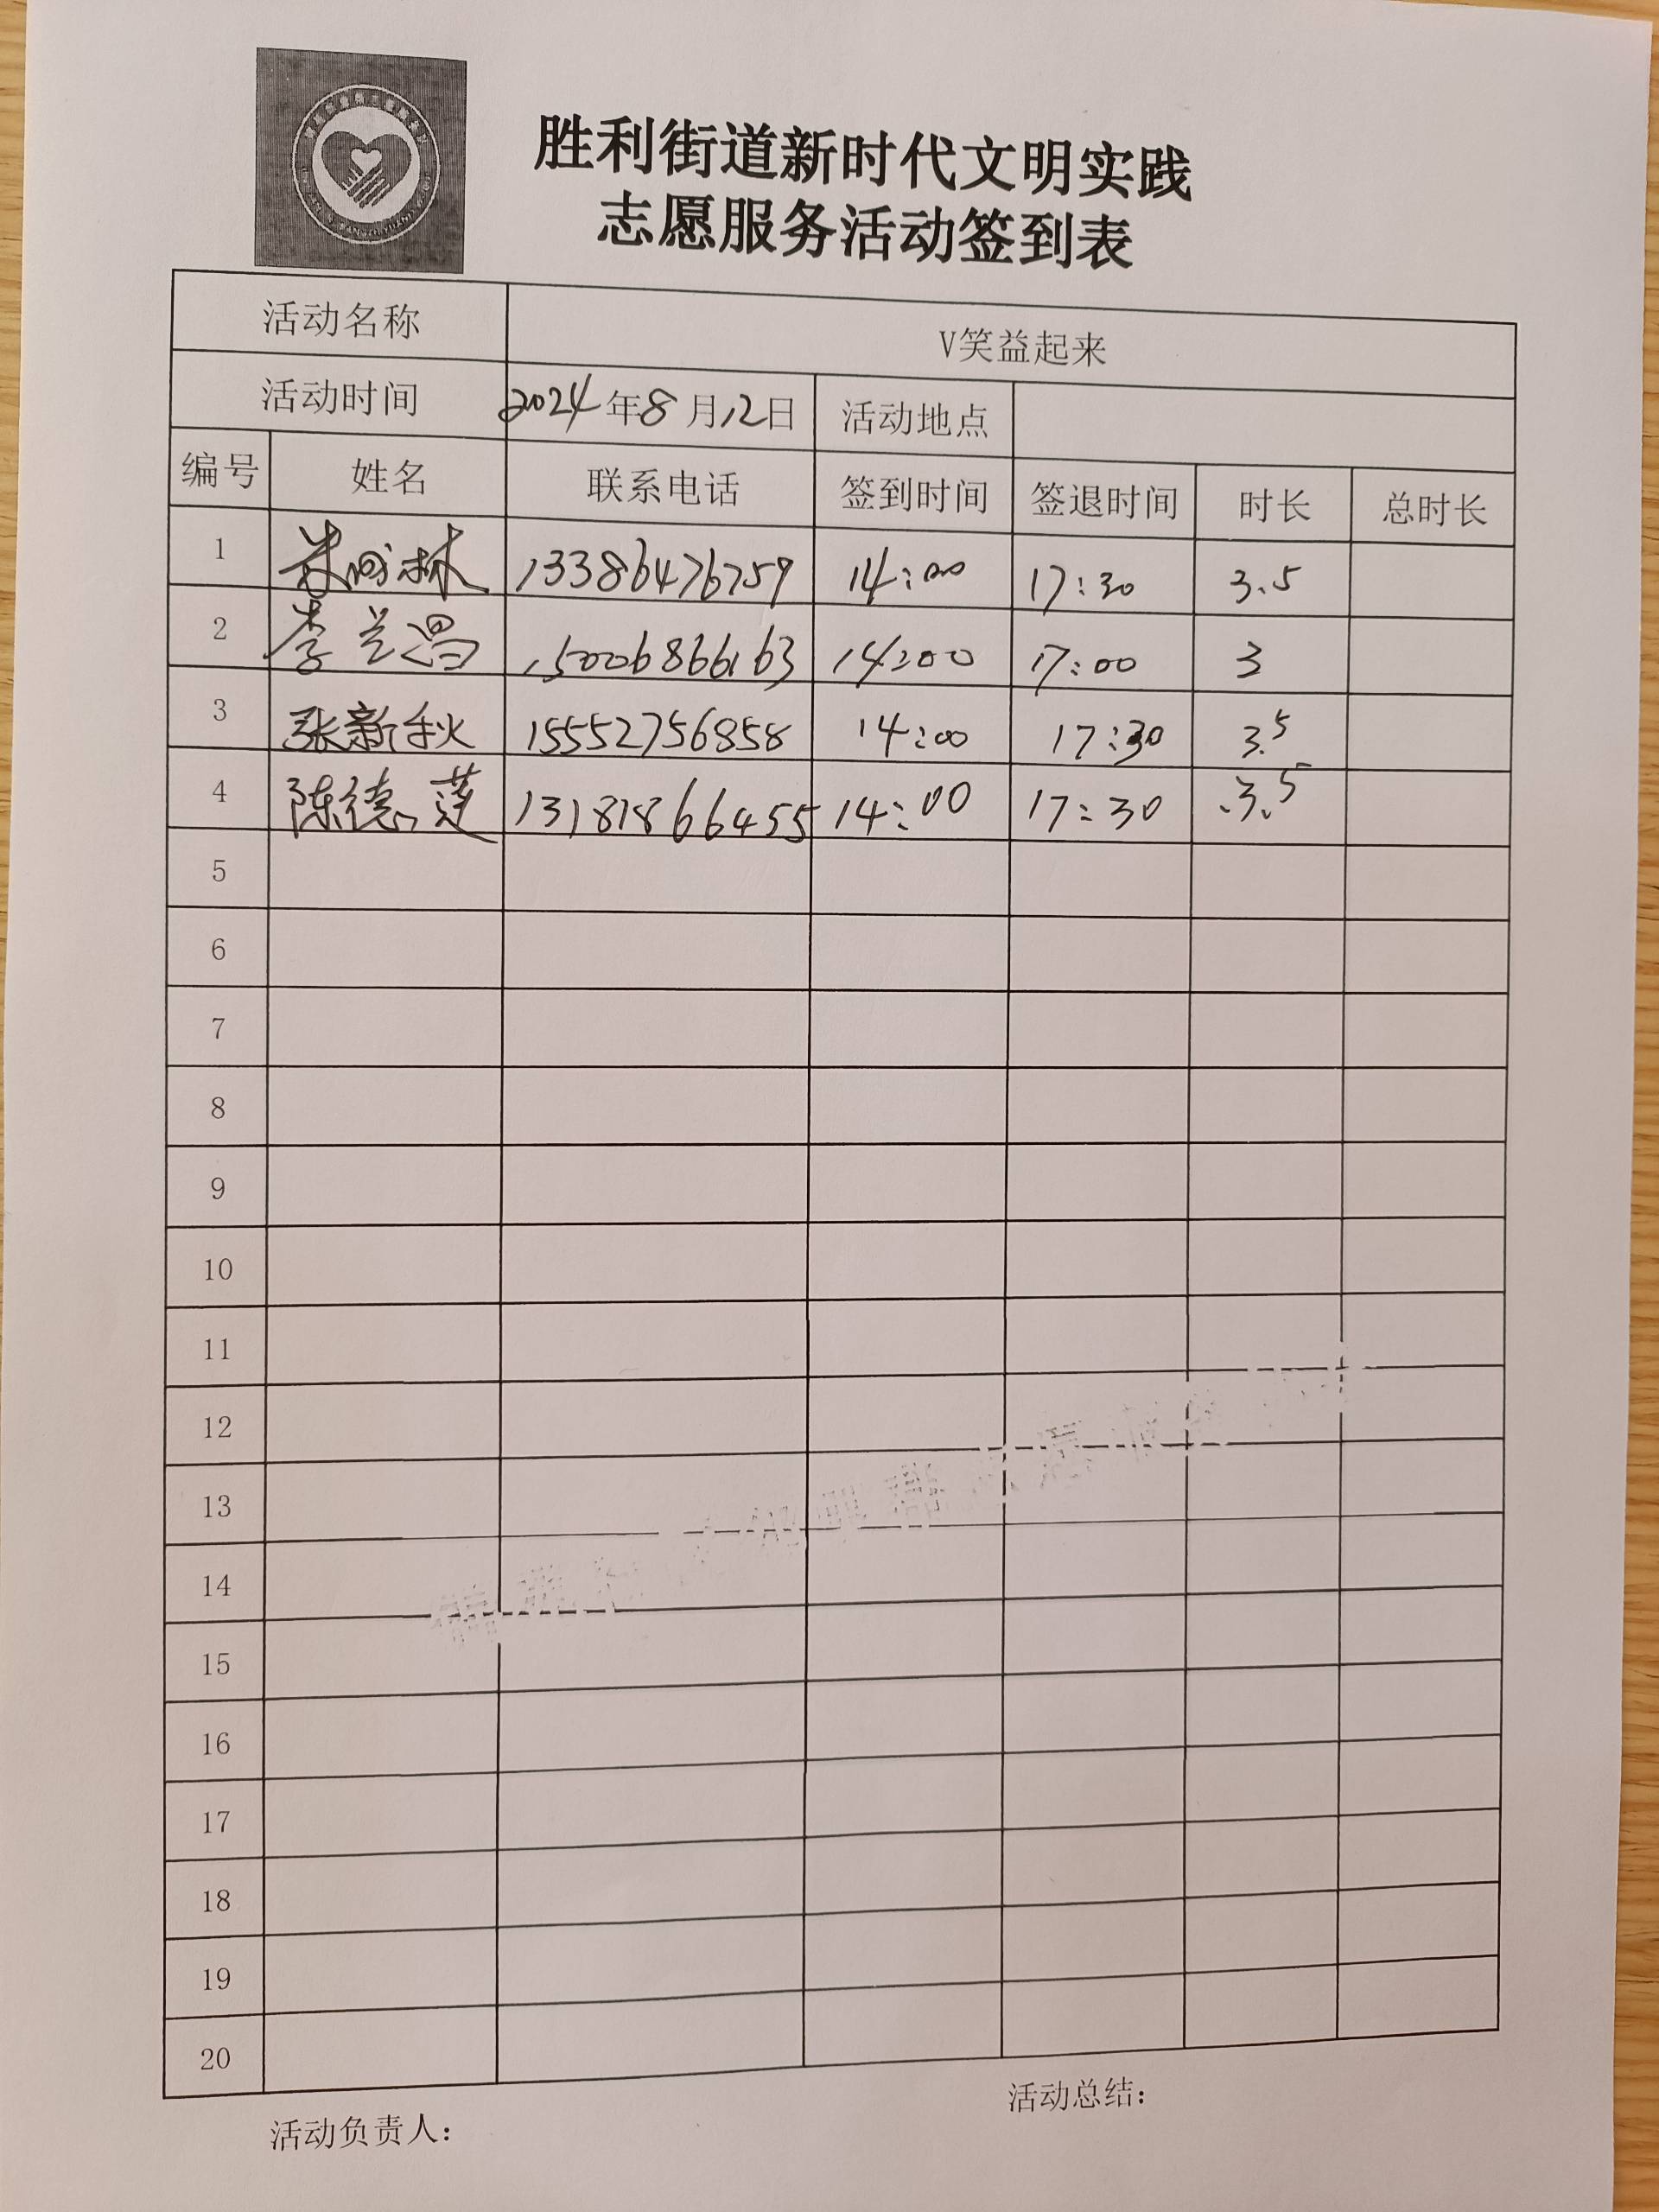 胜利街道新时代文明实践
志愿服务活动签到表
活动名称 V笑益起来
活动时间 2024年8月12日 活动地点
编号 姓名 联系电话 签到时间 签退时间 时长 总时长
1 13386476759 14:00 17:30 3.5
2 李兰昌 15006866163 14:00 17:00 3
3 张新秋 15552756858 14:00 17:30 3.5
4 陈德莲 13181866455 14:00 17:30 3.5
5
6
7
8
9
10
11
12
13
14
15
16
17
18
19
20
活动负责人: 活动总结: